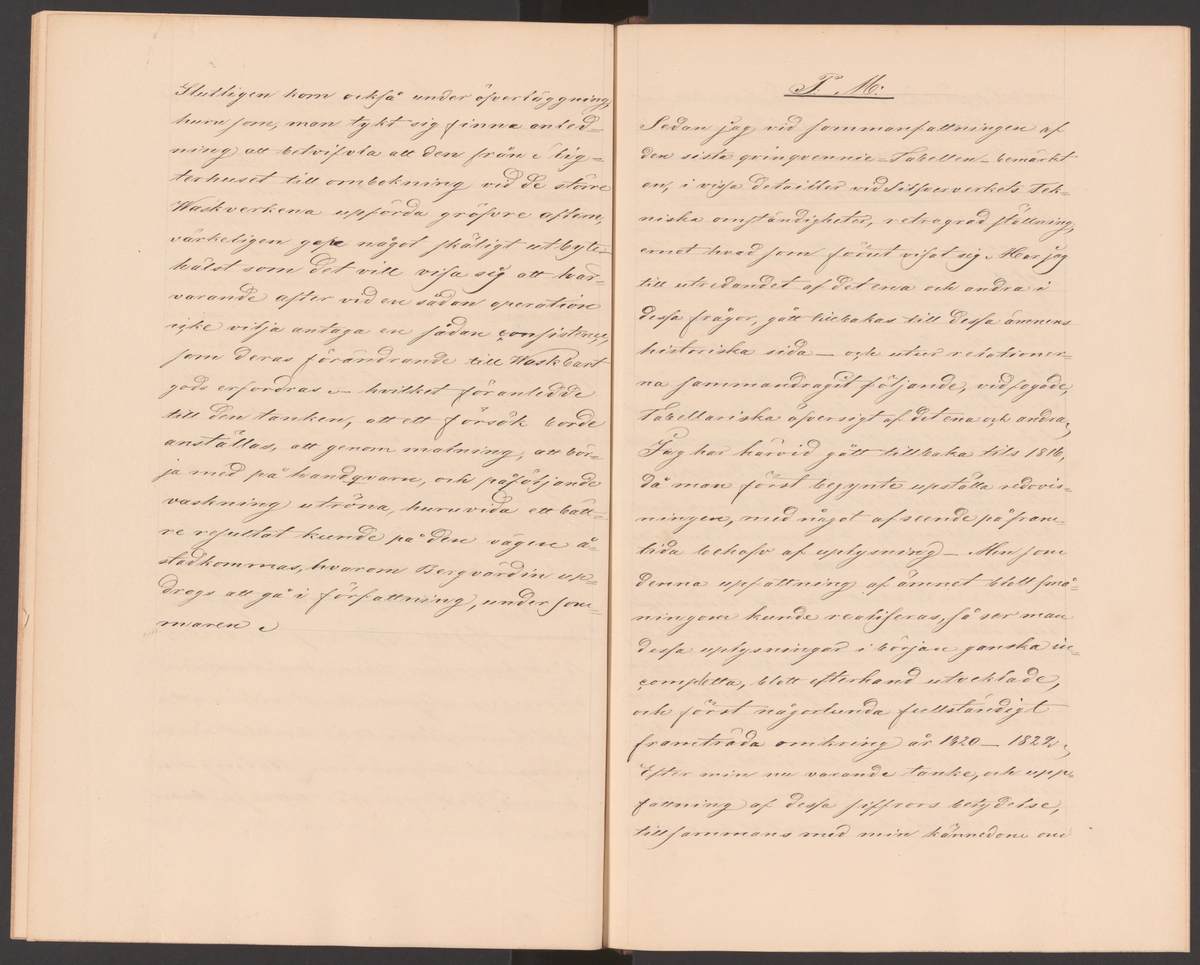 Slutligen kom också under öfverläggning,
huru som, man tykt sig finna anled=
ning att betvifvla att den från Slig=
terhuset till ombokning vid de större
Waskverkena upförda gröfvre aftern,
värkeligen gafe något skäligt utbyte_
hälst som det vill visa sig att kvar=
varande after vid en sådan operation
icke vilja antaga en sådan consistence,
som deras förändrande till Waskbart
gods erfordras – hvilket föranledde
till den tanken, att ett försök borde
anställas, att genom malning, att bör=
ja med på handqvarn, och påföljande
vaskning utröna, huruvida ett bätt=
re resultat kunde på den vägen å=
stadkommas, hvarom Bergvärdin up=
drogs att gå i författning, under som=
maren.
P. M:
Sedan jag vid sammanfattningen af
den sista qvinqvennie=Tabellen_ bemärkt
en, i vissa detailler vid Silfververkets Tek=
niska omständigheter, retrograd ställning,
emot hvad som förut visat sig. Har jag
till utredandet af det ena och andra i
dessa frågor, gått tillbakas till dessa ämnens
historiska sida_ och utur relationer=
na sammandragit följande, vidfogade,
Tabellariska öfversigt af det ena och andra,
Jag har härvid gått tillbaka tils 1816,
då man först begynte upställa redovis=
ningen, med något afseende på fram=
tida behof af uplysning_ Men som
denna uppfattning af ämnet blott små=
ningom kunde realiseras, så ser man
dessa uplysningar i början ganska in=
completta, blott efterhand utveklade,
och först någorlunda fullständigt
framträda omkring år 1820_1822,
Efter min nu varande tanke, och upp=
fattning af dessa siffrors betydelse,
tillsammans med min kännedom om